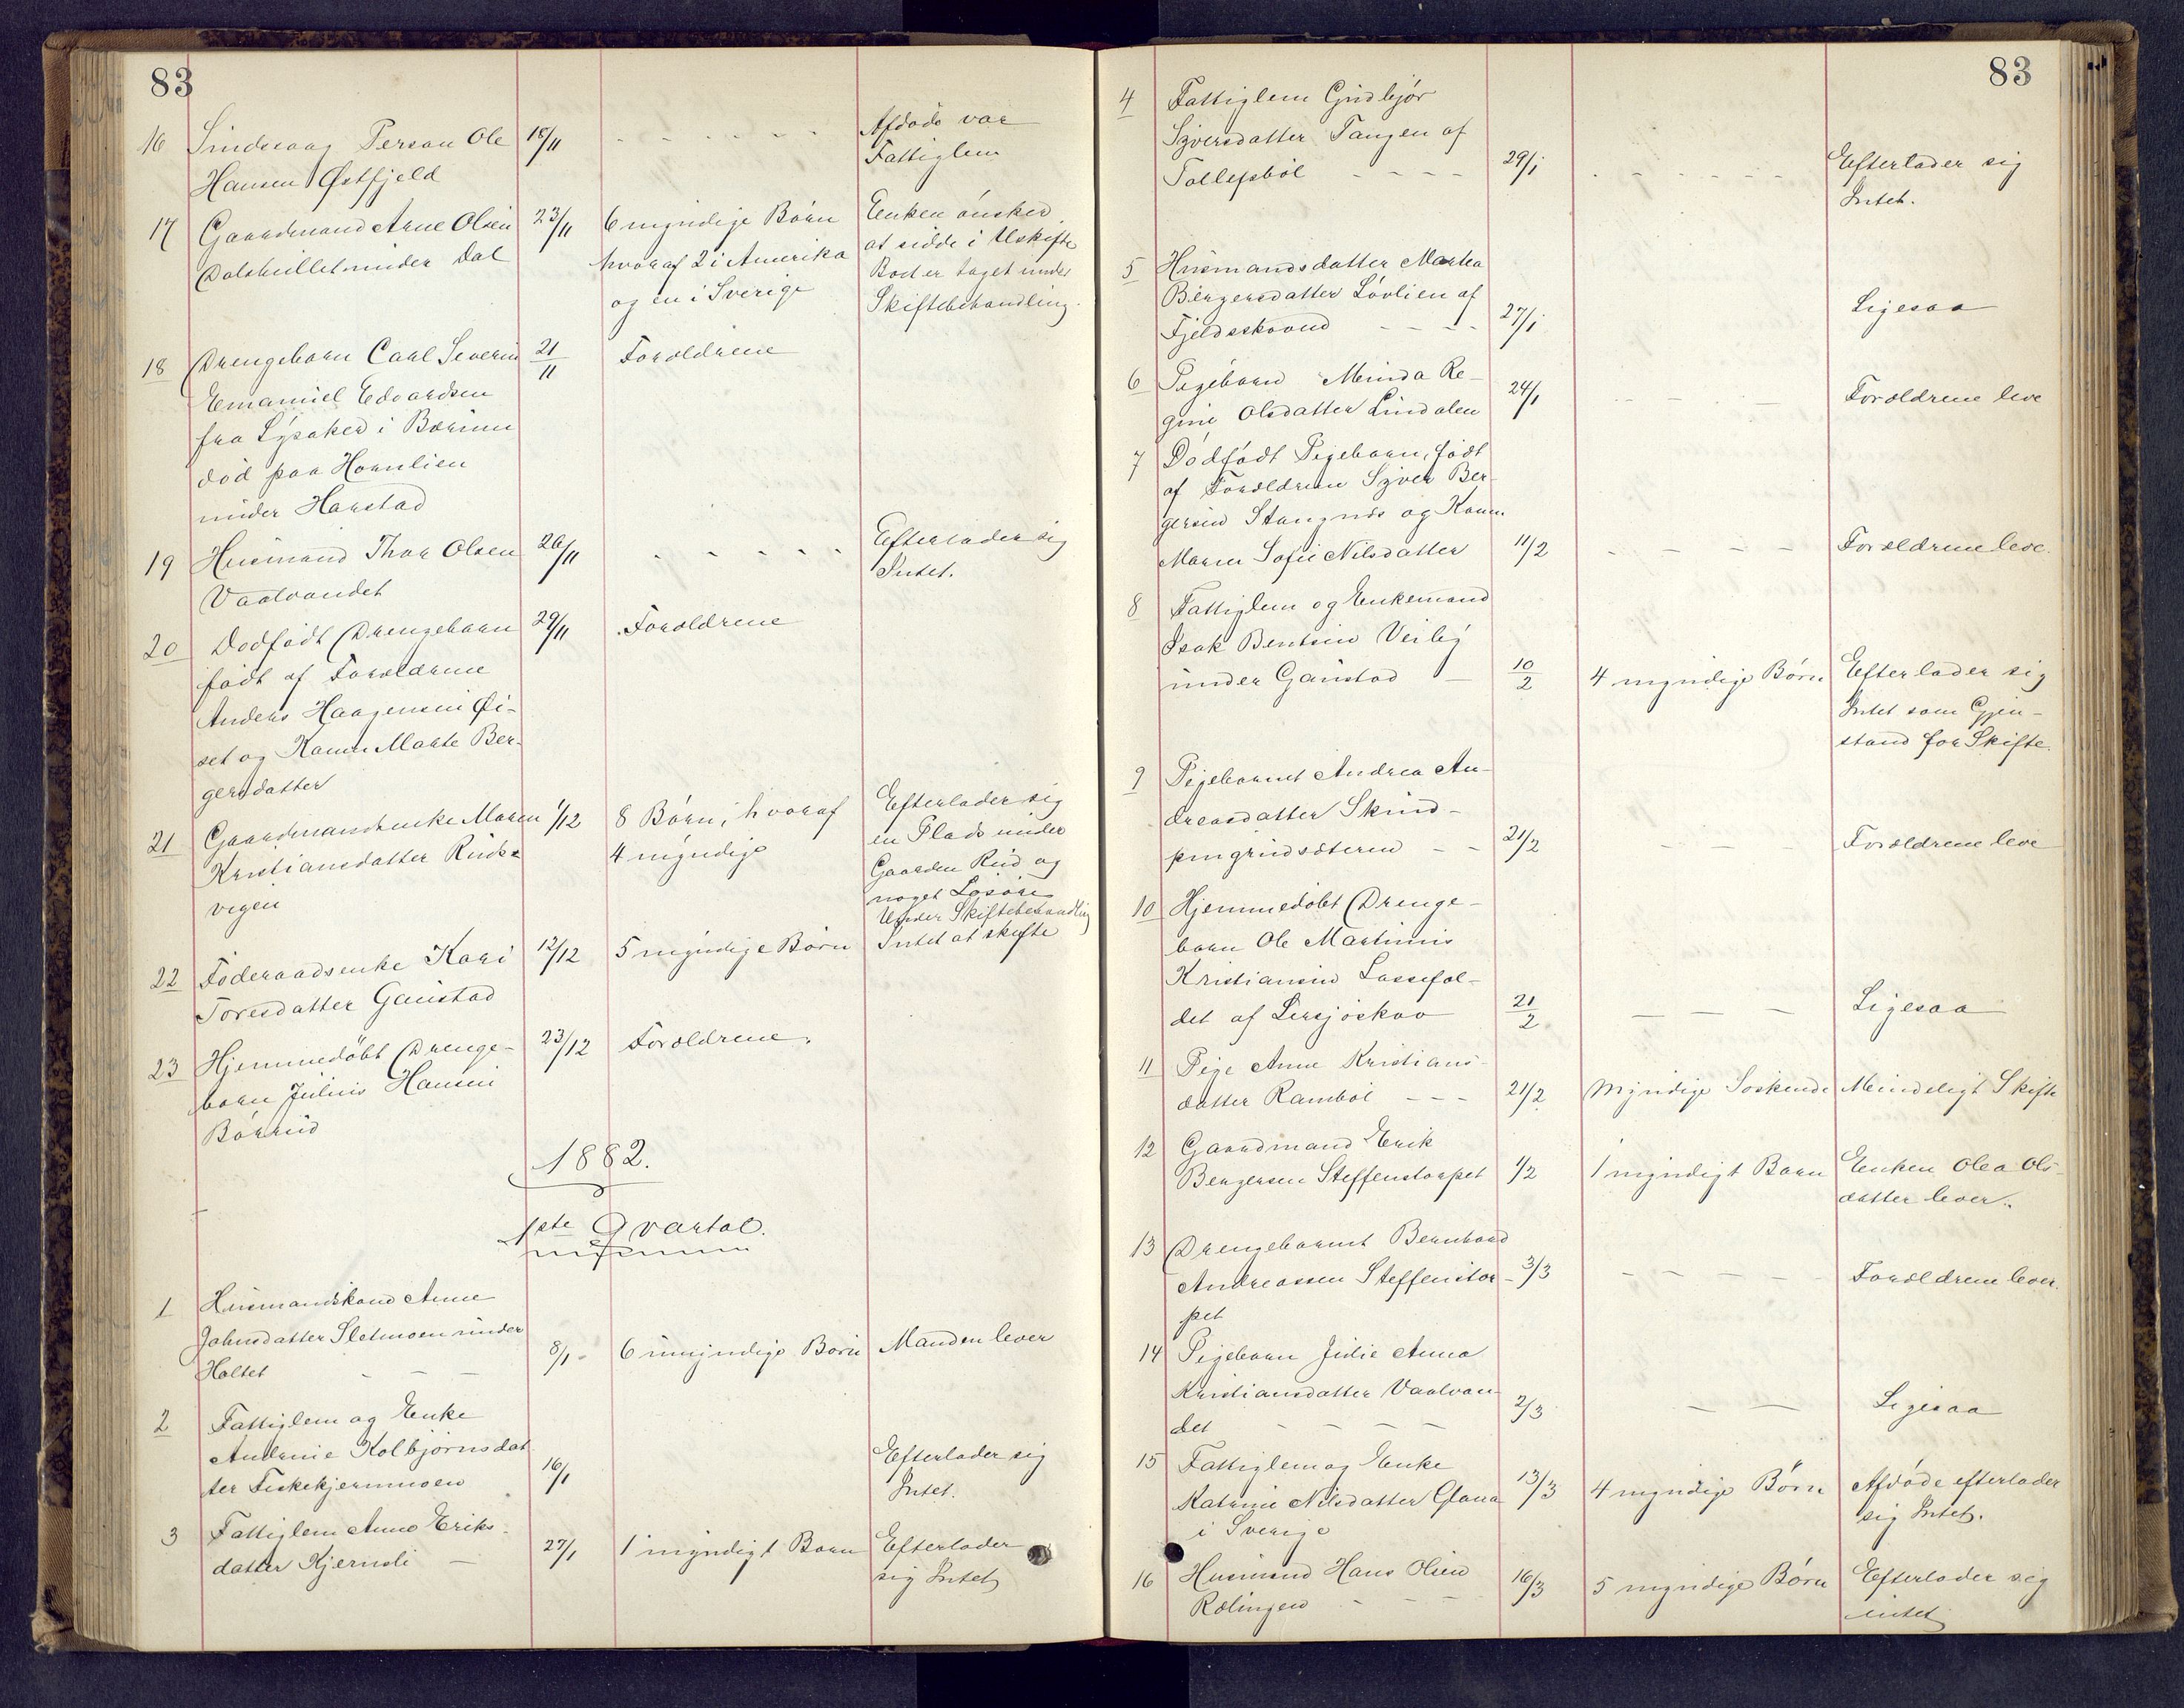 83
16 Sindssvag Person Ole 18/11 - - - - - - Afdøde var
Hansen Østfjeld Fattiglem
17 Gaardmand Arne Olsen 23/11 6 myndige Børn Enken ønsker
Dalshullet under Dal hvoraf 2 i Amerika at sidde i Uskifte
og en i Sverige Boet er taget under
Skiftebehandling.
18 Drengebarn Carl Severin 21/11 Forældrene
Emanuel Edvardsen
fra Lysaker i Bærum
død paa Hornlien
under Harstad
19 Husmand Thor Olsen 26/11 - - - - - Efterlader sig
Vaalvandet Intet.
20 Dødfødt Drengebarn 29/11 Forældrene
født af Forældrene
Anders Haagensen Øi-
set og Kone Marte Ber-
gersdatter
21 Gaardmandsenke Maren 1/12 8 Børn, hvoraf Efterlader sig
Kristiansdatter Ruds- 4 myndige en Plads under
vigen Gaarden Rud og
noget Løsøre
Under Skiftebehandling
22 Føderaadsenke Kari 12/12 5 myndige Børn Intet at skifte
Toresdatter Gaustad
23 Hjemmedøbt Drenge- 23/12 Forældrene.
barn Julius Hansen
Børrud
1882.
1ste Qvartal.
1 Husmandskone Anne
Johnsdatter Sletmoen under
Holtet - - - 8/1 - 6 umyndige Børn Manden lever
2 Fattiglem og Enke
Andrine Kolbjørnsdat
ter Fiskekjernmoen 16/1 Efterlader sig
Intet.
3 Fattiglem Anne Eriks-
datter Kjernsli - 27/1 1 myndigt Barn Efterlader
sig Intet
83
4 Fattiglem Gudbjør
Syversdatter Tangen af
Tollefsbøl - - - - 29/1 - - - - - - Efterlader sig
Intet.
5 Husmandsdatter Martea
Bergersdatter Løvlien af
Fjeldsskovnd - - - - 27/1 Ligesaa
6 Pigebarn Minda Re-
gine Olsdatter Lindalen 24/1 - - - - Forældrene leve
7 Dødfødt Pigebarn, født
af Forældrene Syver Ber-
gersen Stangnes og Kone
Maren Sofie Nilsdatter 11/2 - - - - Forældrene leve.
8 Fattiglem og Enkemand
Isak Bentsen Veiby
under Gaustad - 10/2 4 myndige Børn Efterlader sig
Intet som Gjen-
stand for Skifte.
9 Pigebarnet Andrea An-
dreasdatter Skind-
pungrudsæteren - - 21/2 - - - Forældrene leve
10 Hjemmedøbt Drenge-
barn Ole Martinus
Kristiansen Lassefal-
det af Lersjøskov 21/2 - - - Ligesaa
11 Pige Anne Kristians-
datter Rambøl - - - 21/2 Myndige Søskende Mindeligt Skifte
12 Gaardmand Erik
Bergersen Steffenstorpet 1/2 1 myndigt Barn Enken Olea Ols-
datter lever.
13 Drengebarnet Bernhard
Andreassen Steffenstor- 3/3 - - - - - Forældrene lever.
pet
14 Pigebarn Julie Anna
Kristiansdatter Vaalvan-
det - - - - 2/3 - - Ligesaa
15 Fattiglem og Enke
Katrine Nilsdatter 13/3 4 myndige Børn Afdøde efterlader
i Sverige sig Intet.
16 Husmand Hans Olsen 16/3 5 myndige Børn Efterlader sig
Rølingen - - - intet